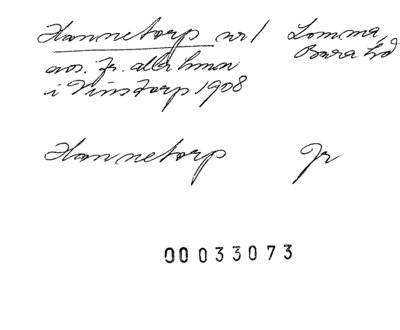 Hannetorp nr 1 Lomma,
avs. fr. Bara hd
i Vinstorp 1908
Hannetorp Jr
00033073